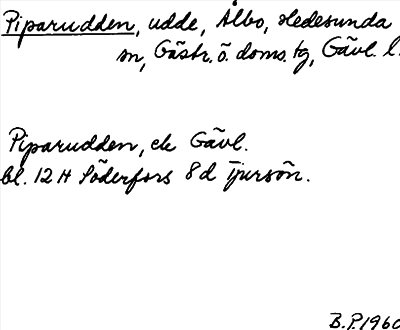 Piparudden, udde, Ålbo, Hedesunda
sn, Gästr. ö. doms. tg, Gävl. l.
Piparudden, ek Gävl.
bl. 12 H Söderfors 8 d Ijursön.
B.P. 1960